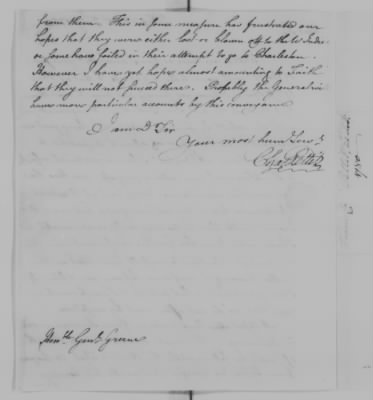 from them. This in some measure has frustrated our
hopes that they were either lost or blown off to the W. Indies
or some have foiled in their attempt to go to Charleston.
However I have yet hopes almost amounting to Faith
that they will not succeed there. Probably the General will
have more particular accounts by this conveyance
I am D Sir
Your most hum Serv.t
Cha Pettit
Hon.ble Gen.l Greene